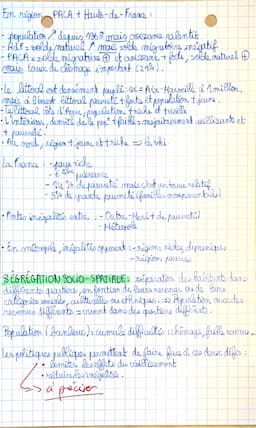 En région : PACA + Hauts-de-France :
- population ↗ depuis 1968 mais croissance ralentit
- HdF = solde naturel ↗ mais solde migratoire négatif
- PACA = solde migratoire ⊕ et croissance + forte, solde naturel ⊕
mais taux de chômage important (29%).
- le littoral est densément peuplé : Aix-Marseille à 1 million,
mais à l'ouest littoral pauvreté + forte et population + jeune.
- Le littoral Côte d'Azur, population + riche et + vieille
- L'intérieur, densité de la pop° + faible = majoritairement vieillissante et
+ pauvreté.
- Au nord, région + jeune et + riche
La France : - pays riche
- puissance
- 14% de pauvreté mais c'est un taux relatif
- 5% de grande pauvreté (famille monoparentale)
- Fortes inégalités entre : - Outre-Mer (+ de pauvreté)
- Métropole
- En métropole, inégalités opposent : - régions riches, dynamiques
- région pauvre
SÉGRÉGATION SOCIO-SPATIALE : séparation des habitants dans
différents quartiers, en fonction de leurs revenus ou de leurs
catégories sociales, culturelles ou ethniques. => Population avec des
revenus différents = vivent dans des quartiers différents.
Population (banlieue) : cumule difficultés : chômage, faible revenu...
Les politiques publiques permettent de faire face à ces deux défis :
- limiter les effets du vieillissement
- réduire les inégalités.
↳ à préciser